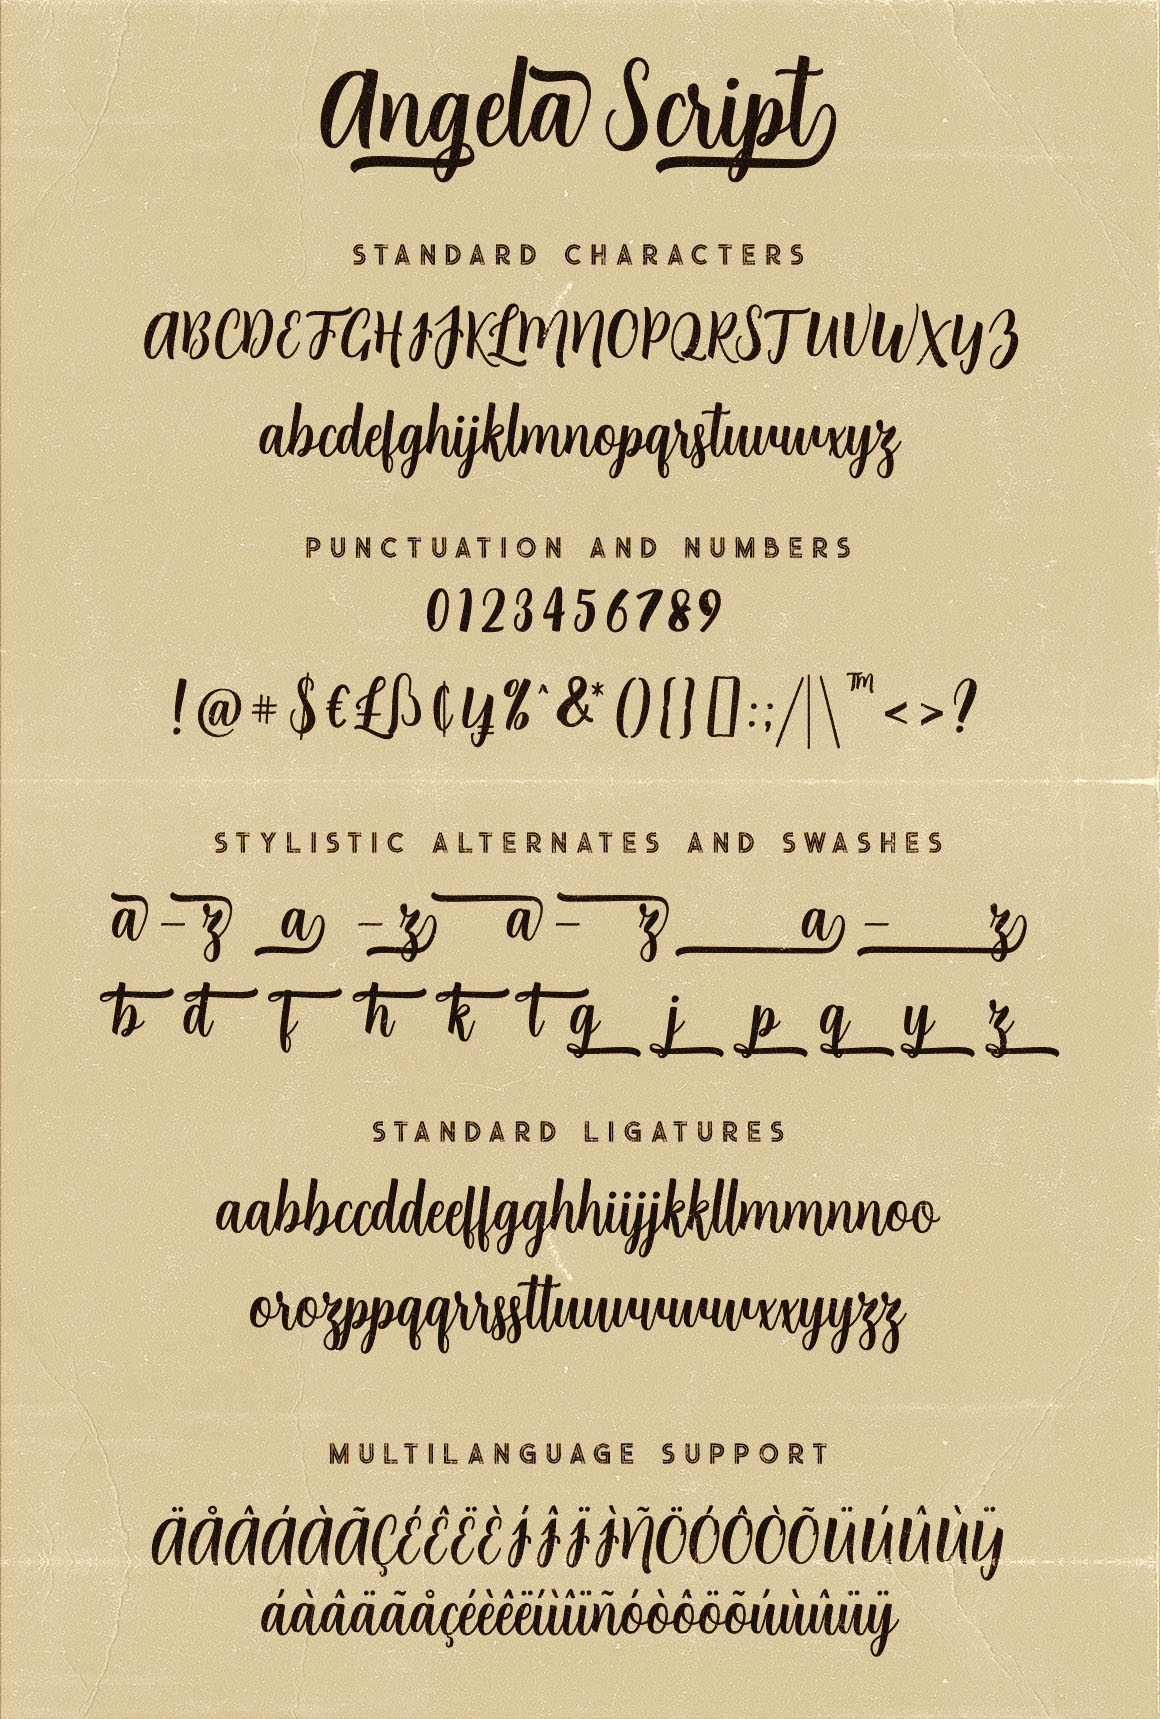 Angela Script
STANDARD CHARACTERS
ABCDEFGHIJKLMNOPQRSTUVWXYZ
abcdefghijklmnopqrstuvwxyz
PUNCTUATION AND NUMBERS
0123456789
!@#$€£ß¢¥%^&*(){}[]:;/|\™<>?
STYLISTIC ALTERNATES AND SWASHES
a - z a - z a - z a - z
b d f h k t g j p q y z
STANDARD LIGATURES
aabbccddeeffgghhiijjkkllmmnnoo
orozppqqrrssttuuvvwwxxyyzz
MULTILANGUAGE SUPPORT
ÄÅÂÁÀÃÇÉÊËÈÍÎÏÌÑÖÓÔÒÕÜÚÛÙŸ
áàâäãåçéèêëíìîïñóòôöõúùûüÿ